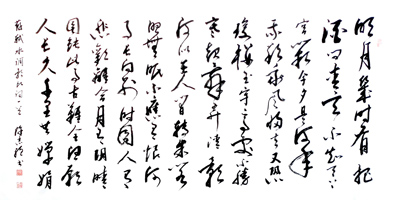 明月幾时有把
酒问青天不知天上
宫阙今夕是何年
我欲乘风归去又恐
瓊楼玉宇高处不勝
寒起舞弄清影
何似在人间转朱阁
照無眠不應有恨何
事長向别时圆人有
悲歡離合月有阴晴
圆缺此事古難全但願
人長久千里共嬋娟
蘇軾水调歌头词一首